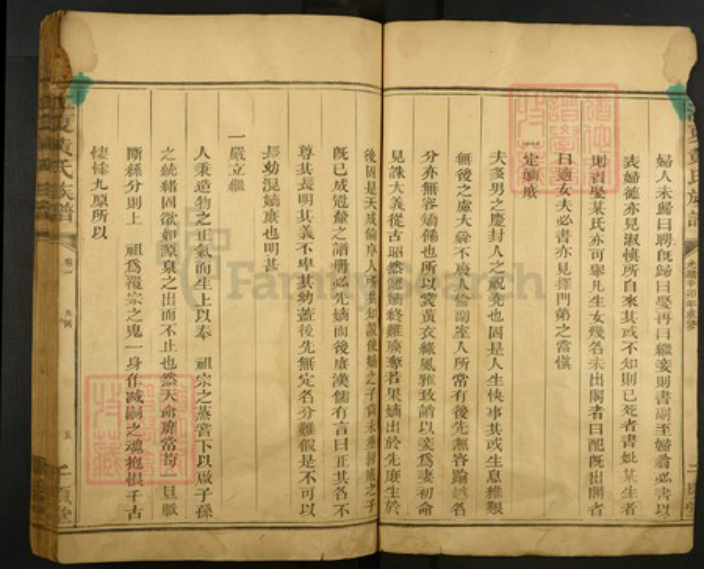 婦人未歸曰聘旣歸曰娶再曰繼妾則書副至婦翁必書以
表婦德亦見淑愼所自來其或不知則已死者書妣某生者
則書娶某氏亦可舉凡生女幾名未出閣者曰配旣出閣者
曰適女夫必書亦見擇門第之當愼
一定嫡庶
夫多男之慶封人之祝堯也固是人生快事其或生息維艱
無後之慮大舜不廢人倫副室人所常有後先無容踰越名
分亦無容矯僞也所以裳黃衣綠風雅致誚以妾爲妻初命
見誅大義從古昭然總嫡終難廢奪若果嫡出於先庶生於
後固是天成倫序人所共知設使嫡之子
旣已成冠修之譜册必先嫡而後庶漢儒有言曰正其名不
尊其長明其義不卑其幼蓋後先無定名分難假是不可以
長幼混嫡庶也明甚
一嚴立繼
人秉造物之正氣而生上以奉 祖宗之蒸嘗下以啟子孫
之統緒固欲如源泉之出而不止也然天命靡常苟一旦脈
斷絲分則上 祖爲覆宗之鬼一身作滅嗣之魂抱恨千古
悽悽九原所以
江夏黃氏族譜
卷一
五
千頃堂
光緒辛卯年
FamilySearch